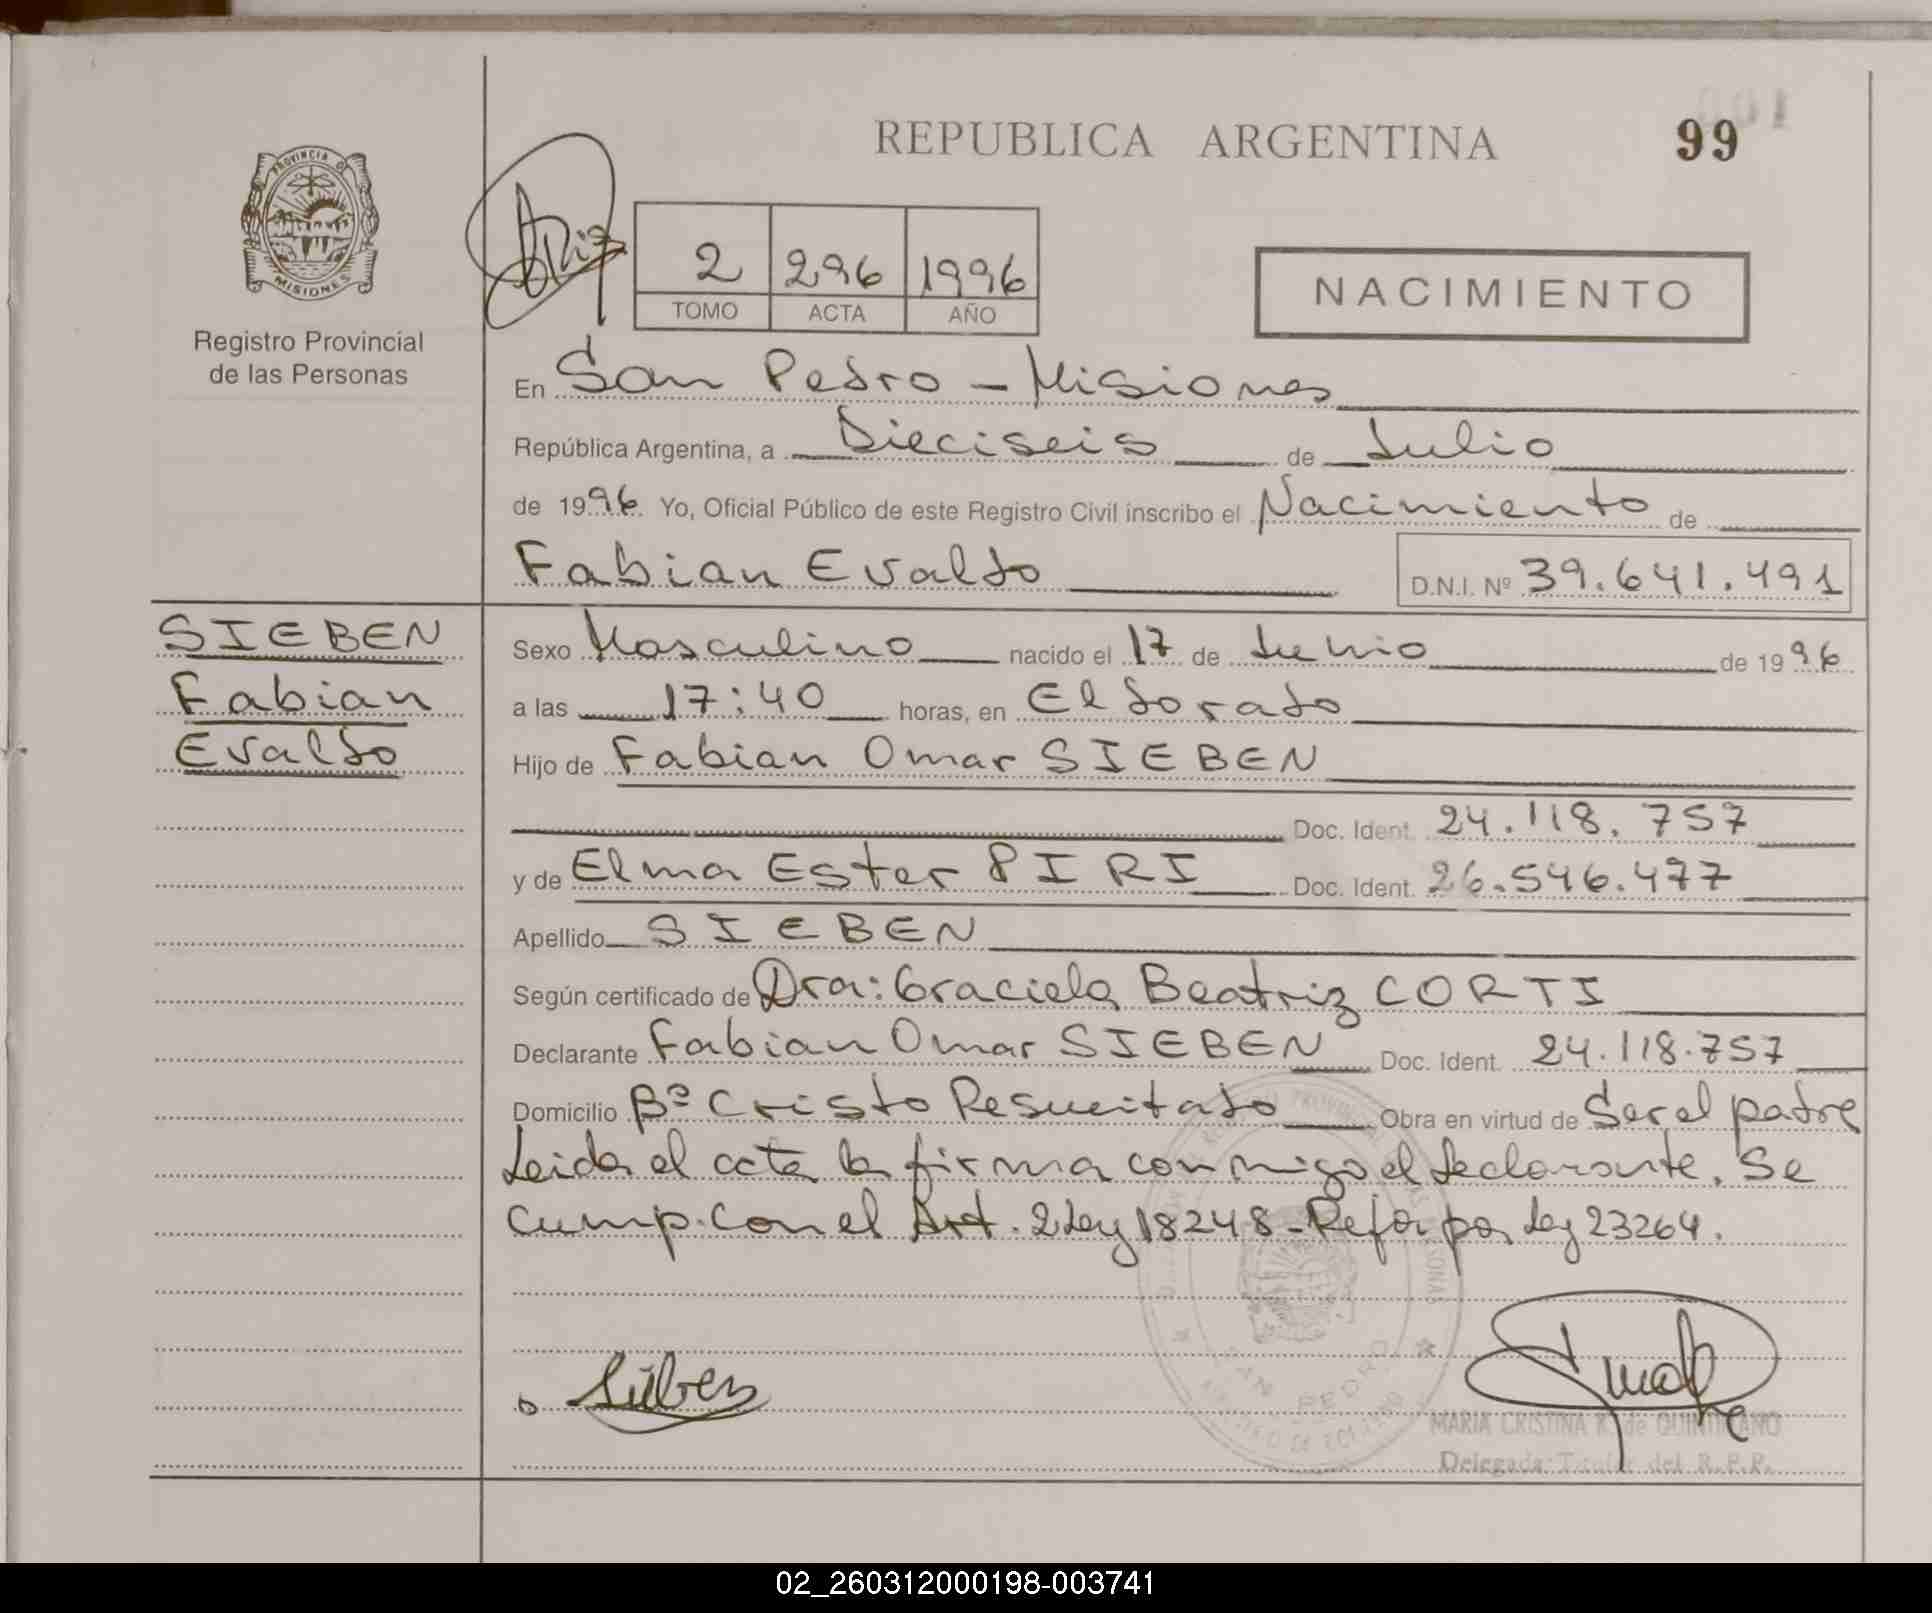 REPUBLICA ARGENTINA
99
PROVINCIA D
MISIONES
Registro Provincial
de las Personas
2 296 1996
TOMO ACTA AÑO
NACIMIENTO
En San Pedro - Misiones
República Argentina, a Dieciseis de Julio
de 1996 Yo, Oficial Público de este Registro Civil inscribo el Nacimiento de
Fabian Evaldo D.N.I. Nº 39.641.491
SIEBEN
Fabian
Evaldo
Sexo Masculino nacido el 17 de Junio de 1996
a las 17:40 horas, en Eldorado
Hijo de Fabian Omar SIEBEN
Doc. Ident. 24.118.757
y de Elma Ester PIRI Doc. Ident. 26.546.477
Apellido SIEBEN
Según certificado de Dra: Graciela Beatriz CORTI
Declarante Fabian Omar SIEBEN Doc. Ident. 24.118.757
Domicilio Bº Cristo Resucitado Obra en virtud de Ser el padre
Leida el acta la firma conmigo el declarante. Se
cump. con el Art. 2 Ley 18248 - Refor por Ley 23264.
Sieben
SAN PEDRO
MARIA CRISTINA K. de QUINTITANO
Delegada Titular del R.P.P.
02_260312000198-003741